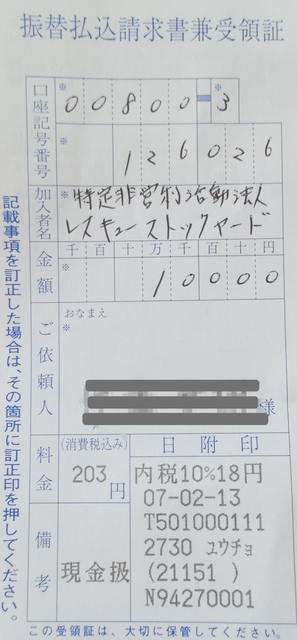 振替払込請求書兼受領証
口座記号番号
※ 00800-3
※ 126026
加入者名
※ 特定非営利活動法人
レスキューストックヤード
金額
千百十万千百十円
※ 10000
ご依頼人
おなまえ
※
様
料金
(消費税込み)
203円
備考
現金扱
日附印
内税10%18円
07-02-13
T501000111
2730 ユウチョ
(21151 )
N94270001
記載事項を訂正した場合は、その箇所に訂正印を押してください。
この受領証は、大切に保管してください。